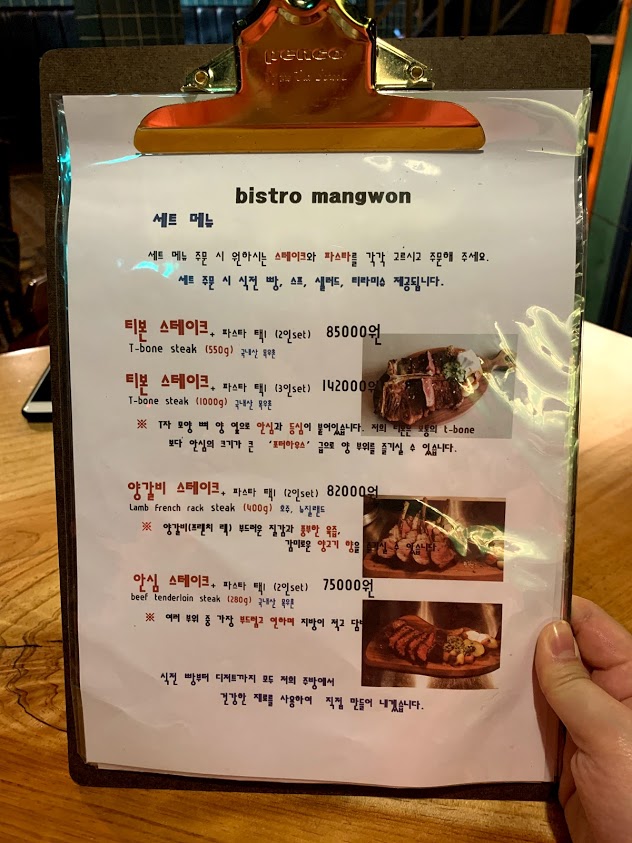 penco
bistro mangwon
세트 메뉴
세트 메뉴 주문 시 원하시는 스테이크와 파스타를 각각 고르시고 주문해 주세요.
세트 주문 시 식전 빵, 스프, 샐러드, 티라미슈 제공됩니다.
티본 스테이크+ 파스타 택1 (2인set) 85000원
T-bone steak (550g) 국내산 육우
티본 스테이크+ 파스타 택1 (3인set) 142000원
T-bone steak (1000g) 국내산 육우
※ T자 모양 뼈 양 옆으로 안심과 등심이 붙어있습니다. 저희 티본은 보통의 t-bone
보다 안심의 크기가 큰 '포터하우스' 급으로 양 부위를 즐기실 수 있습니다.
양갈비 스테이크+ 파스타 택1 (2인set) 82000원
Lamb french rack steak (400g) 호주, 뉴질랜드
※ 양갈비(프렌치 랙) 부드러운 질감과 풍부한 육즙,
감미로운 양고기 향을 수 있습니다.
안심 스테이크+ 파스타 택1 (2인set) 75000원
beef tenderloin steak (280g) 국내산 육우
※ 여러 부위 중 가장 부드럽고 연하며 지방이 적고
식전 빵부터 디저트까지 모두 저희 주방에서
건강한 재료를 사용하여 직접 만들어 내겠습니다.